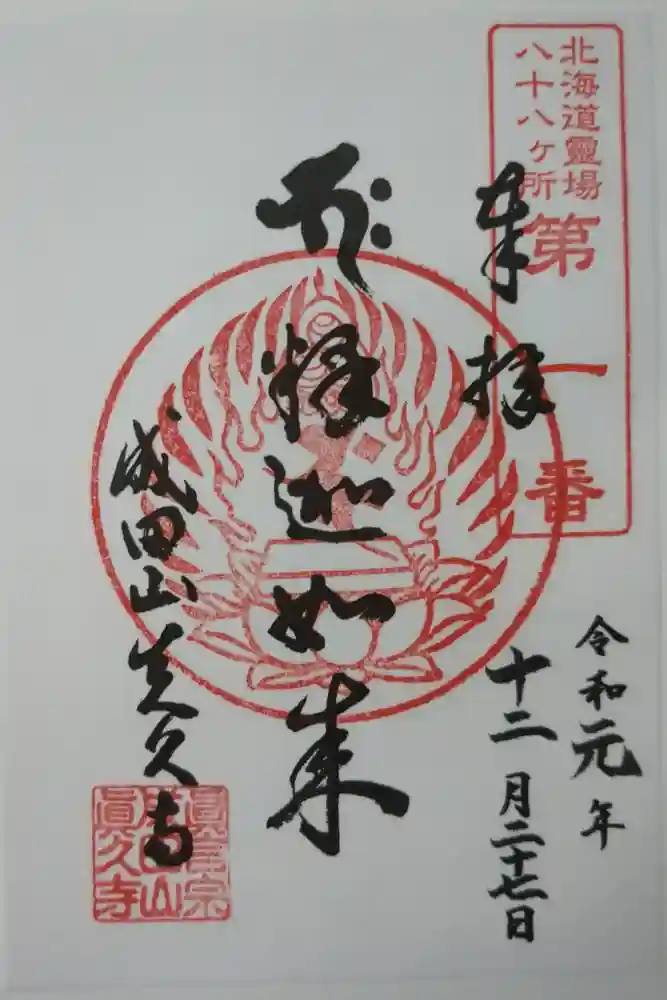 北海道靈場
八十八ヶ所
第一番
奉拝
令和元年
十二月二十七日
釋迦如来
成田山真久寺
眞言宗
成田山
眞久寺